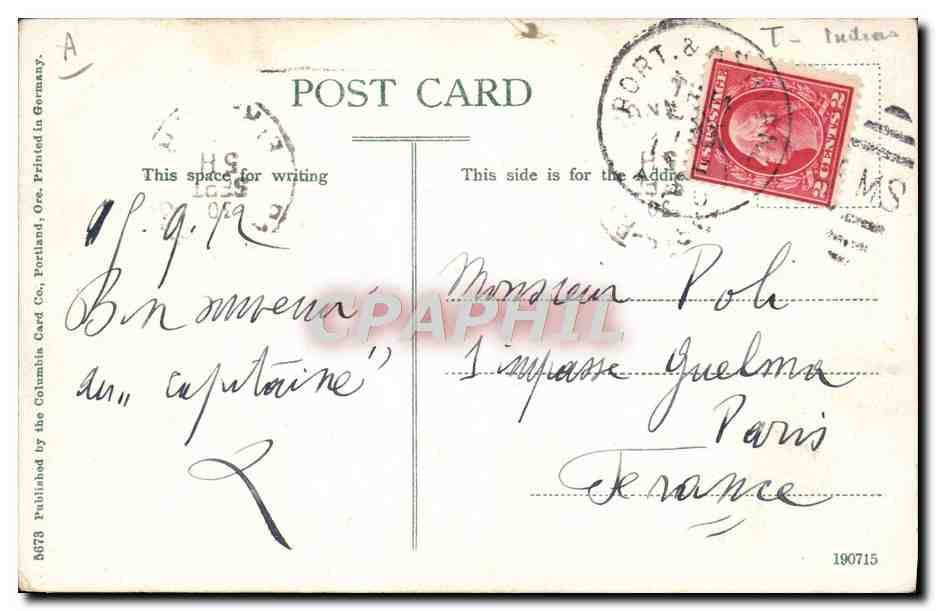 A
T- Indias
POST CARD
PORT. &
U.S. POSTAGE
2 CENTS 2
This space for writing
This side is for the Address
SEPT
30
15.9.12
Bon souvenir
du "capitaine"
Monsieur Poli
1 impasse Guelma
Paris
France
CPAPHIL
5673 Published by the Columbia Card Co., Portland, Ore. Printed in Germany.
190715